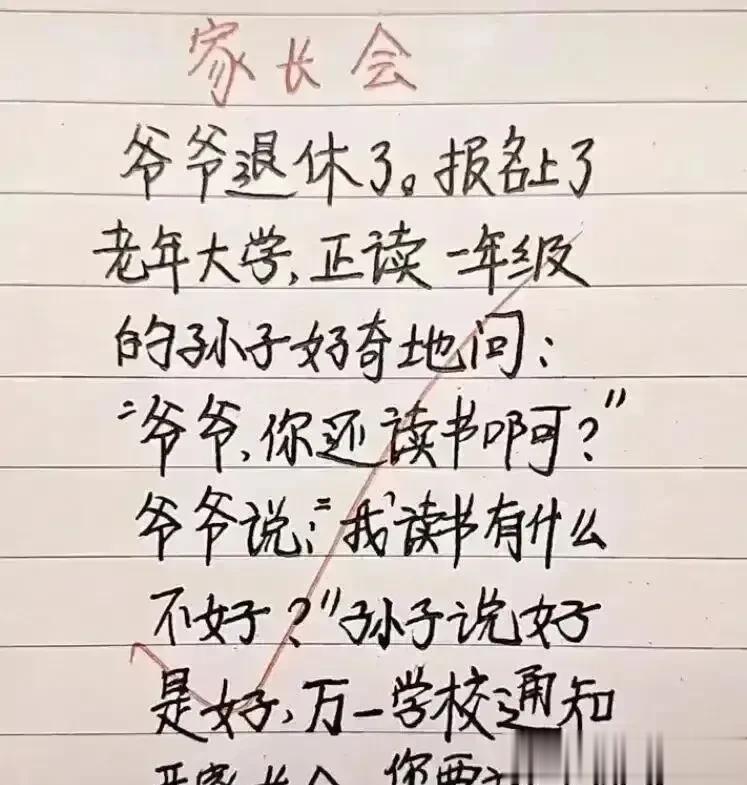 家长会
爷爷退休了。报名上了
老年大学,正读一年级
的孙子好奇地问:
“爷爷,你还读书啊?”
爷爷说:“我读书有什么
不好?”孙子说好
是好,万一学校通知
开家长会,你要